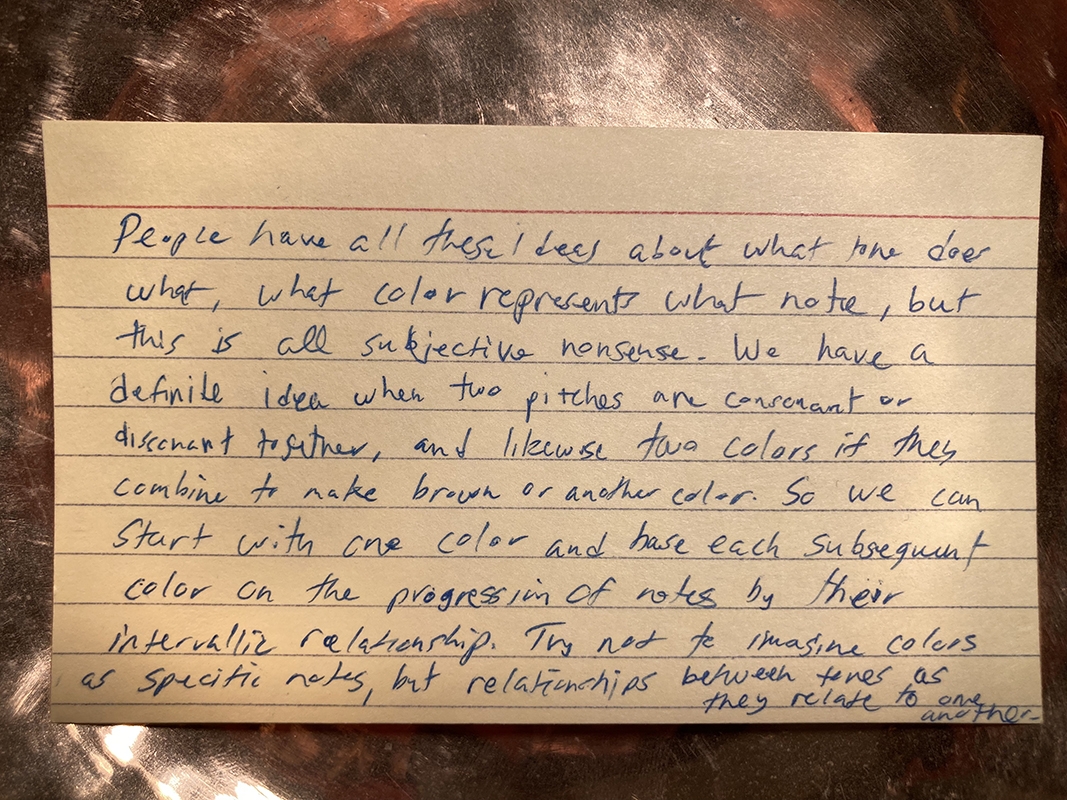 People have all these ideas about what tone does
what, what color represents what note, but
this is all subjective nonsense. We have a
definite idea when two pitches are consonant or
dissonant together, and likewise two colors if they
combine to make brown or another color. So we can
Start with one color and base each subsequent
color on the progression of notes by their
intervallic relationship. Try not to imagine colors
as specific notes, but relationships between tones as
they relate to one
another.